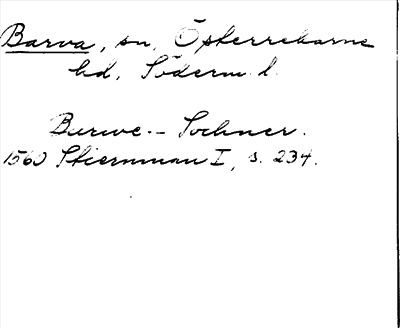 Barva, sn, Österrekarne
hd, Söderm. l.
Burwe. – Sochner.
1560 Stiernman I, s. 234.